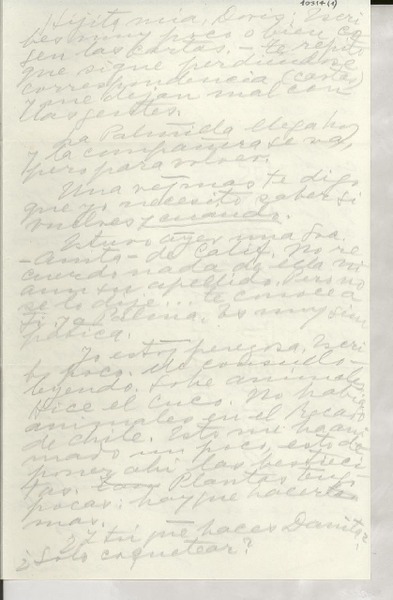 10314 (1)
Hijita mía, Doris: Escri
bes muy poco o bien ca
en las cartas. - te repito
que sigue perdiéndose
correspondencia (cartas)
y me dejan mal con
las gentes.
La Palmida llega hoy
y la compañera se va,
pero para volver.
Una vez más te digo
que yo necesito saber si
vuelves y cuando.
Estuvo ayer una Sra.
- Anita - de Calif. No re
cuerdo nada de ella ni
aun su apellido. Pero no
se lo dije... te conoce a
ti. Ya Palma. Es muy sim
pática.
Yo estoy perezosa. Escri
bo poco. Me consuelo
leyendo. Sobre animales
hice el cuco. No había
animales en el Recado
de Chile. Esto me ha ani
mado un poco, esto de
poner ahí las bestieci
tas. Plantas tengo
pocas: hay que hacerlas
mas.
¿Y tú qué haces Danita?
¿Solo coquetear?